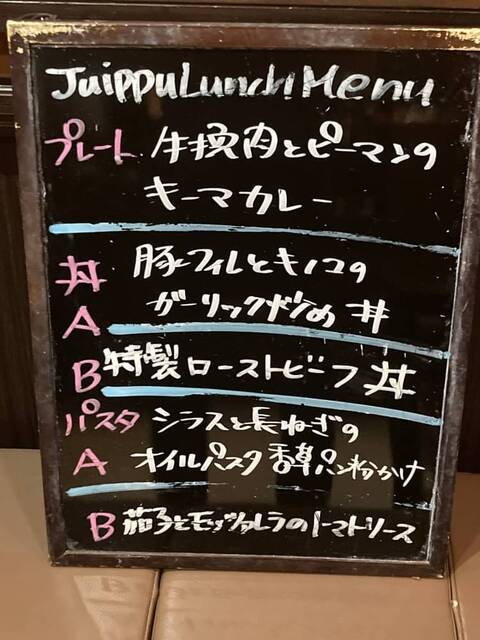 Juippu Lunch Menu
プレート 牛挽肉とピーマンの
キーマカレー
丼 豚フィレとキノコの
A ガーリック炒め丼
B 特製ローストビーフ丼
パスタ シラスと長ねぎの
A オイルパスタ 香草パン粉かけ
B 茄子とモッツァレラのトマトソース